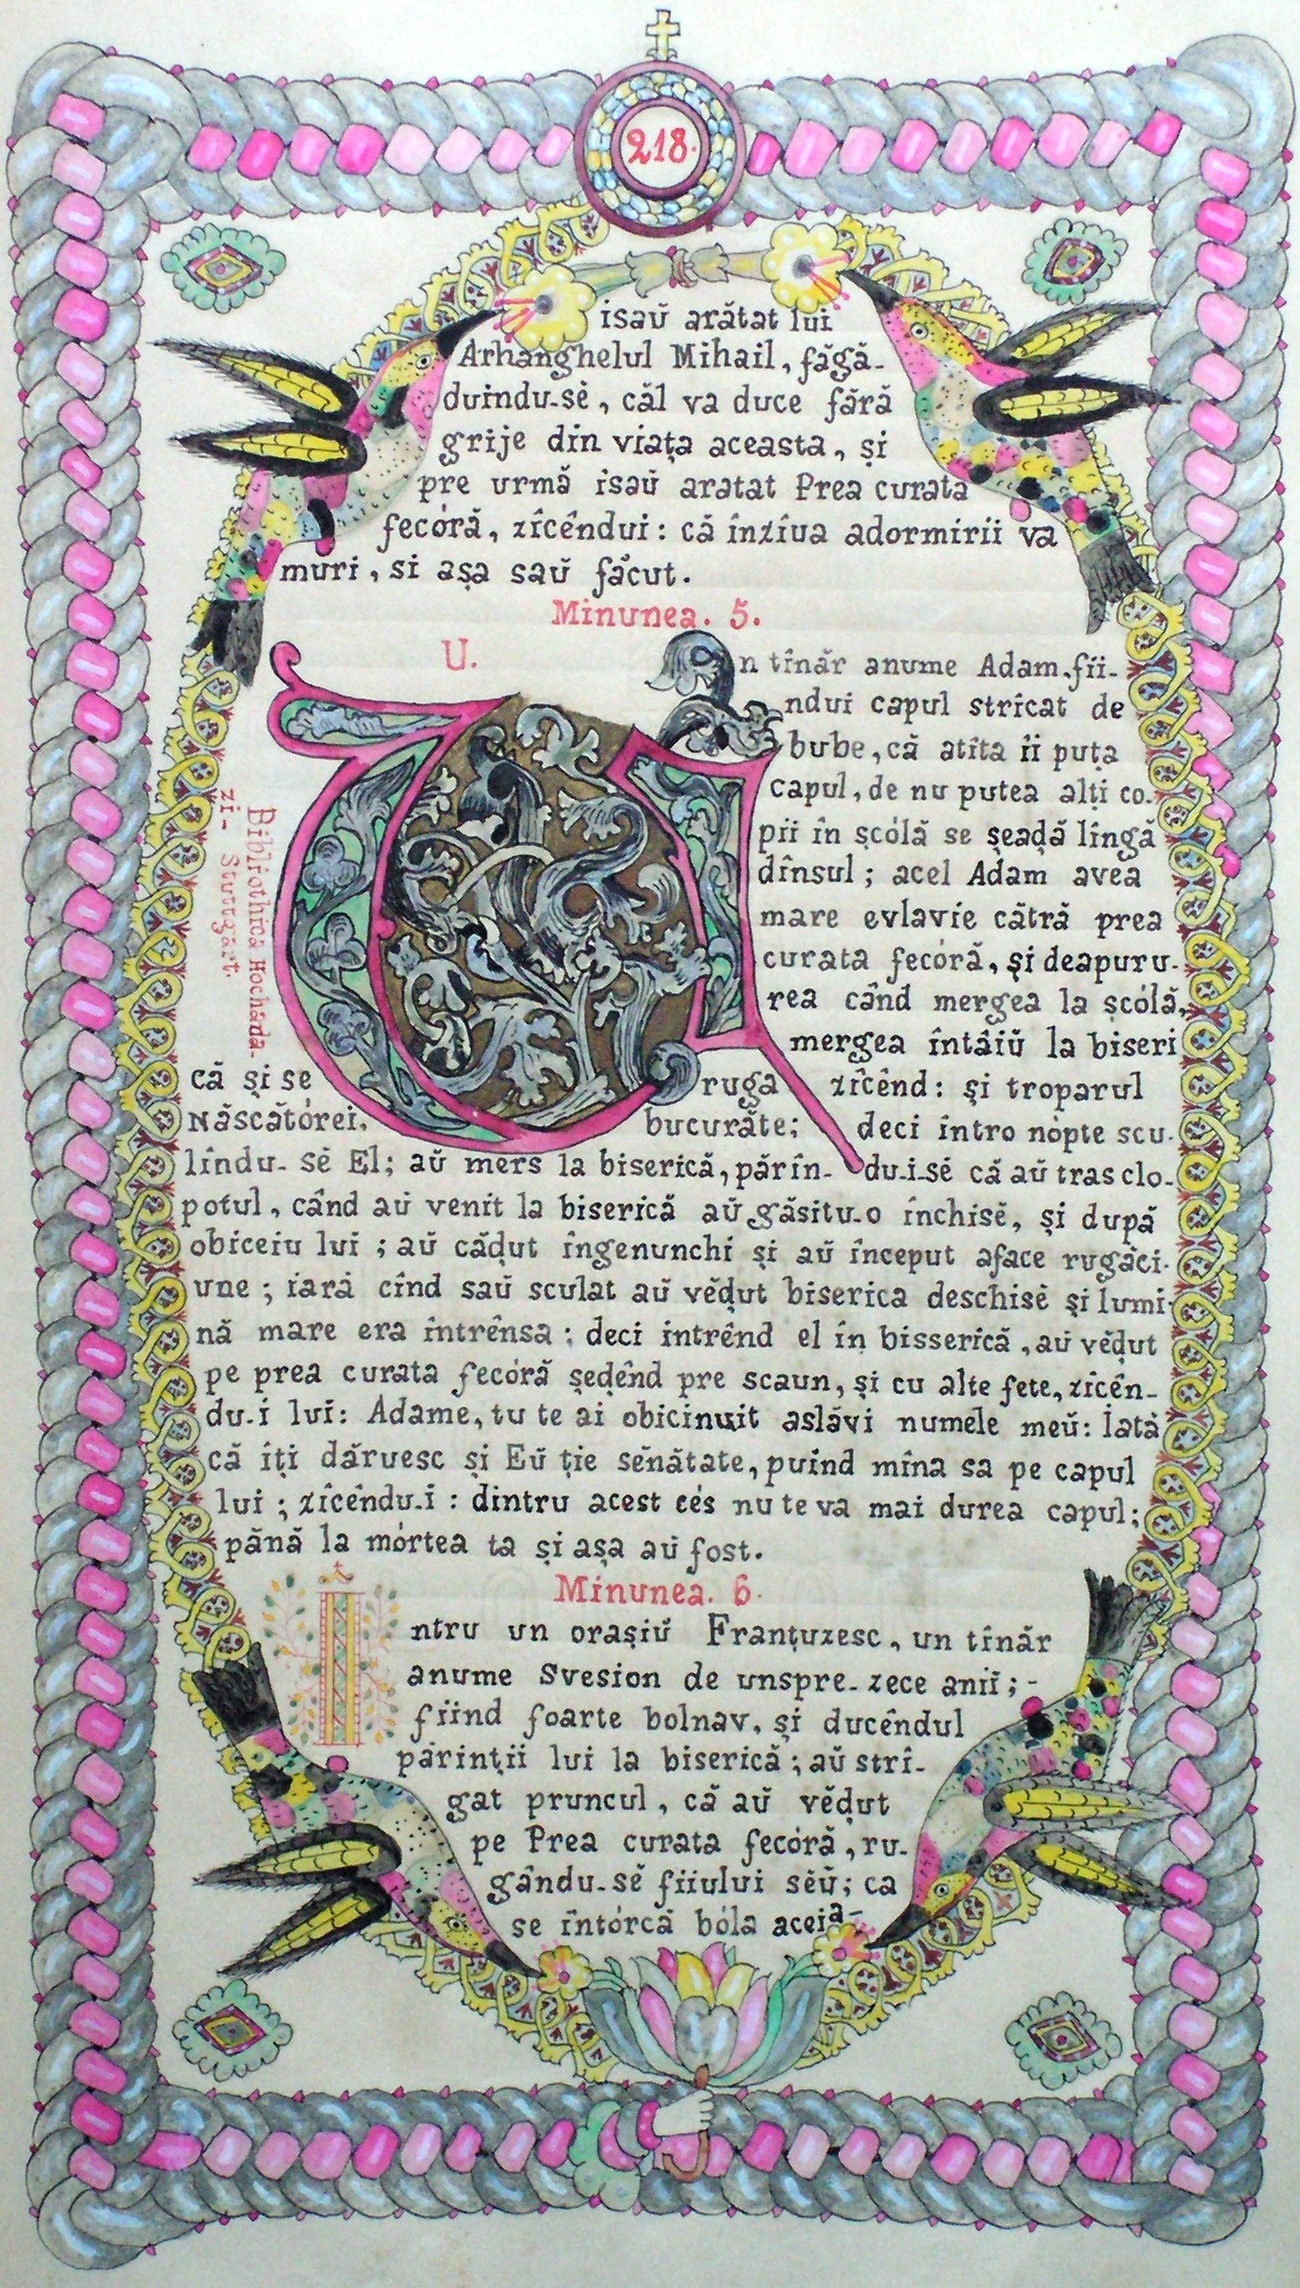 218.
isaŭ arătat lui
Arhanghelul Mihail, făgă-
duindu-sĕ, căl va duce fără
grije din viața aceasta, și
pre urmă isaŭ aratat Prea curata
fecóră, zîcêndui: că înzîua adormirii va
muri, si așa saŭ făcut.
Minunea. 5.
U.
n tînăr anume Adam, fii-
ndui capul stricat de
bube, că atîta îi puța
capul, de nu putea alți co-
pii în șcólă se șeadă lîngă
dînsul; acel Adam avea
mare evlavie cătră prea
curata fecóră, și deapuru-
rea când mergea la șcólă,
mergea întâiŭ la biseri
că și se ruga zîcênd: și troparul
Născătórei, bucurăte; deci întro nópte scu-
lîndu-sĕ El; aŭ mers la biserică, părîn-du-i-sĕ că aŭ tras clo-
potul, când aŭ venit la biserică aŭ găsitu-o închisĕ, și după
obiceiu lui; aŭ căḑut îngenunchi și aŭ început aface rugăci-
une; iară cînd saŭ sculat aŭ vĕḑut biserica deschisĕ și lumi-
nă mare era întrênsa; deci intrênd el în bisserică, aŭ vĕḑut
pe prea curata fecóră șeḑênd pre scaun, și cu alte fete, zîcên-
du-i lui: Adame, tu te ai obicinuit aslăvi numele meŭ: Iată
că îți dăruesc și Eŭ ție sĕnătate, puind mîna sa pe capul
lui; zîcêndu-i: dintru acest cés nu te va mai durea capul;
pănă la mórtea ta și așa aŭ fost.
Bibliothica Hochada-
zi- Stuttgart.
Minunea. 6.
Intru un orașiŭ Franțuzesc, un tînăr
anume Svesion de unspre-zece anii;-
fiind foarte bolnav, și ducêndul
părinții lui la biserică; aŭ stri-
gat pruncul, că aŭ vĕḑut
pe Prea curata fecóră, ru-
gându-sĕ fiiului sĕŭ; ca
se întórcă bóla aceia-